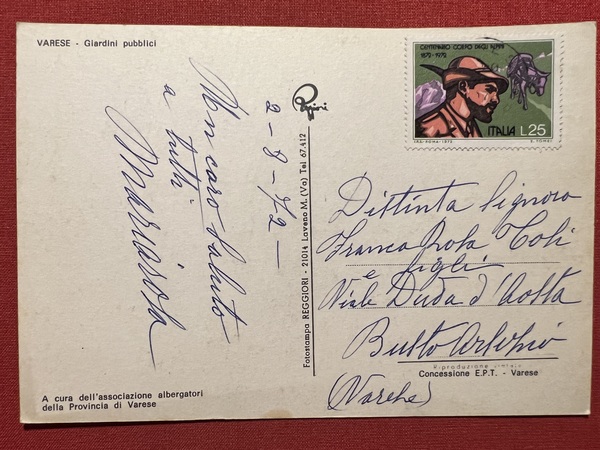 VARESE - Giardini pubblici
CENTENARIO CORPO DEGLI ALPINI
1872-1972
ITALIA L.25
IPS-ROMA-1972
E. TOMEI
2-8-72-
Un caro saluto
a tutti
Mariarosa
Reggiori
Fotostampa REGGIORI - 21014 Laveno M. (Va) Tel 67.412
Distinta Signora
Franca Rota Toli
e figli
Viale Duca d'Aosta
Busto Arsizio
(Varese)
Riproduzione vietata
Concessione E.P.T. - Varese
A cura dell'associazione albergatori
della Provincia di Varese